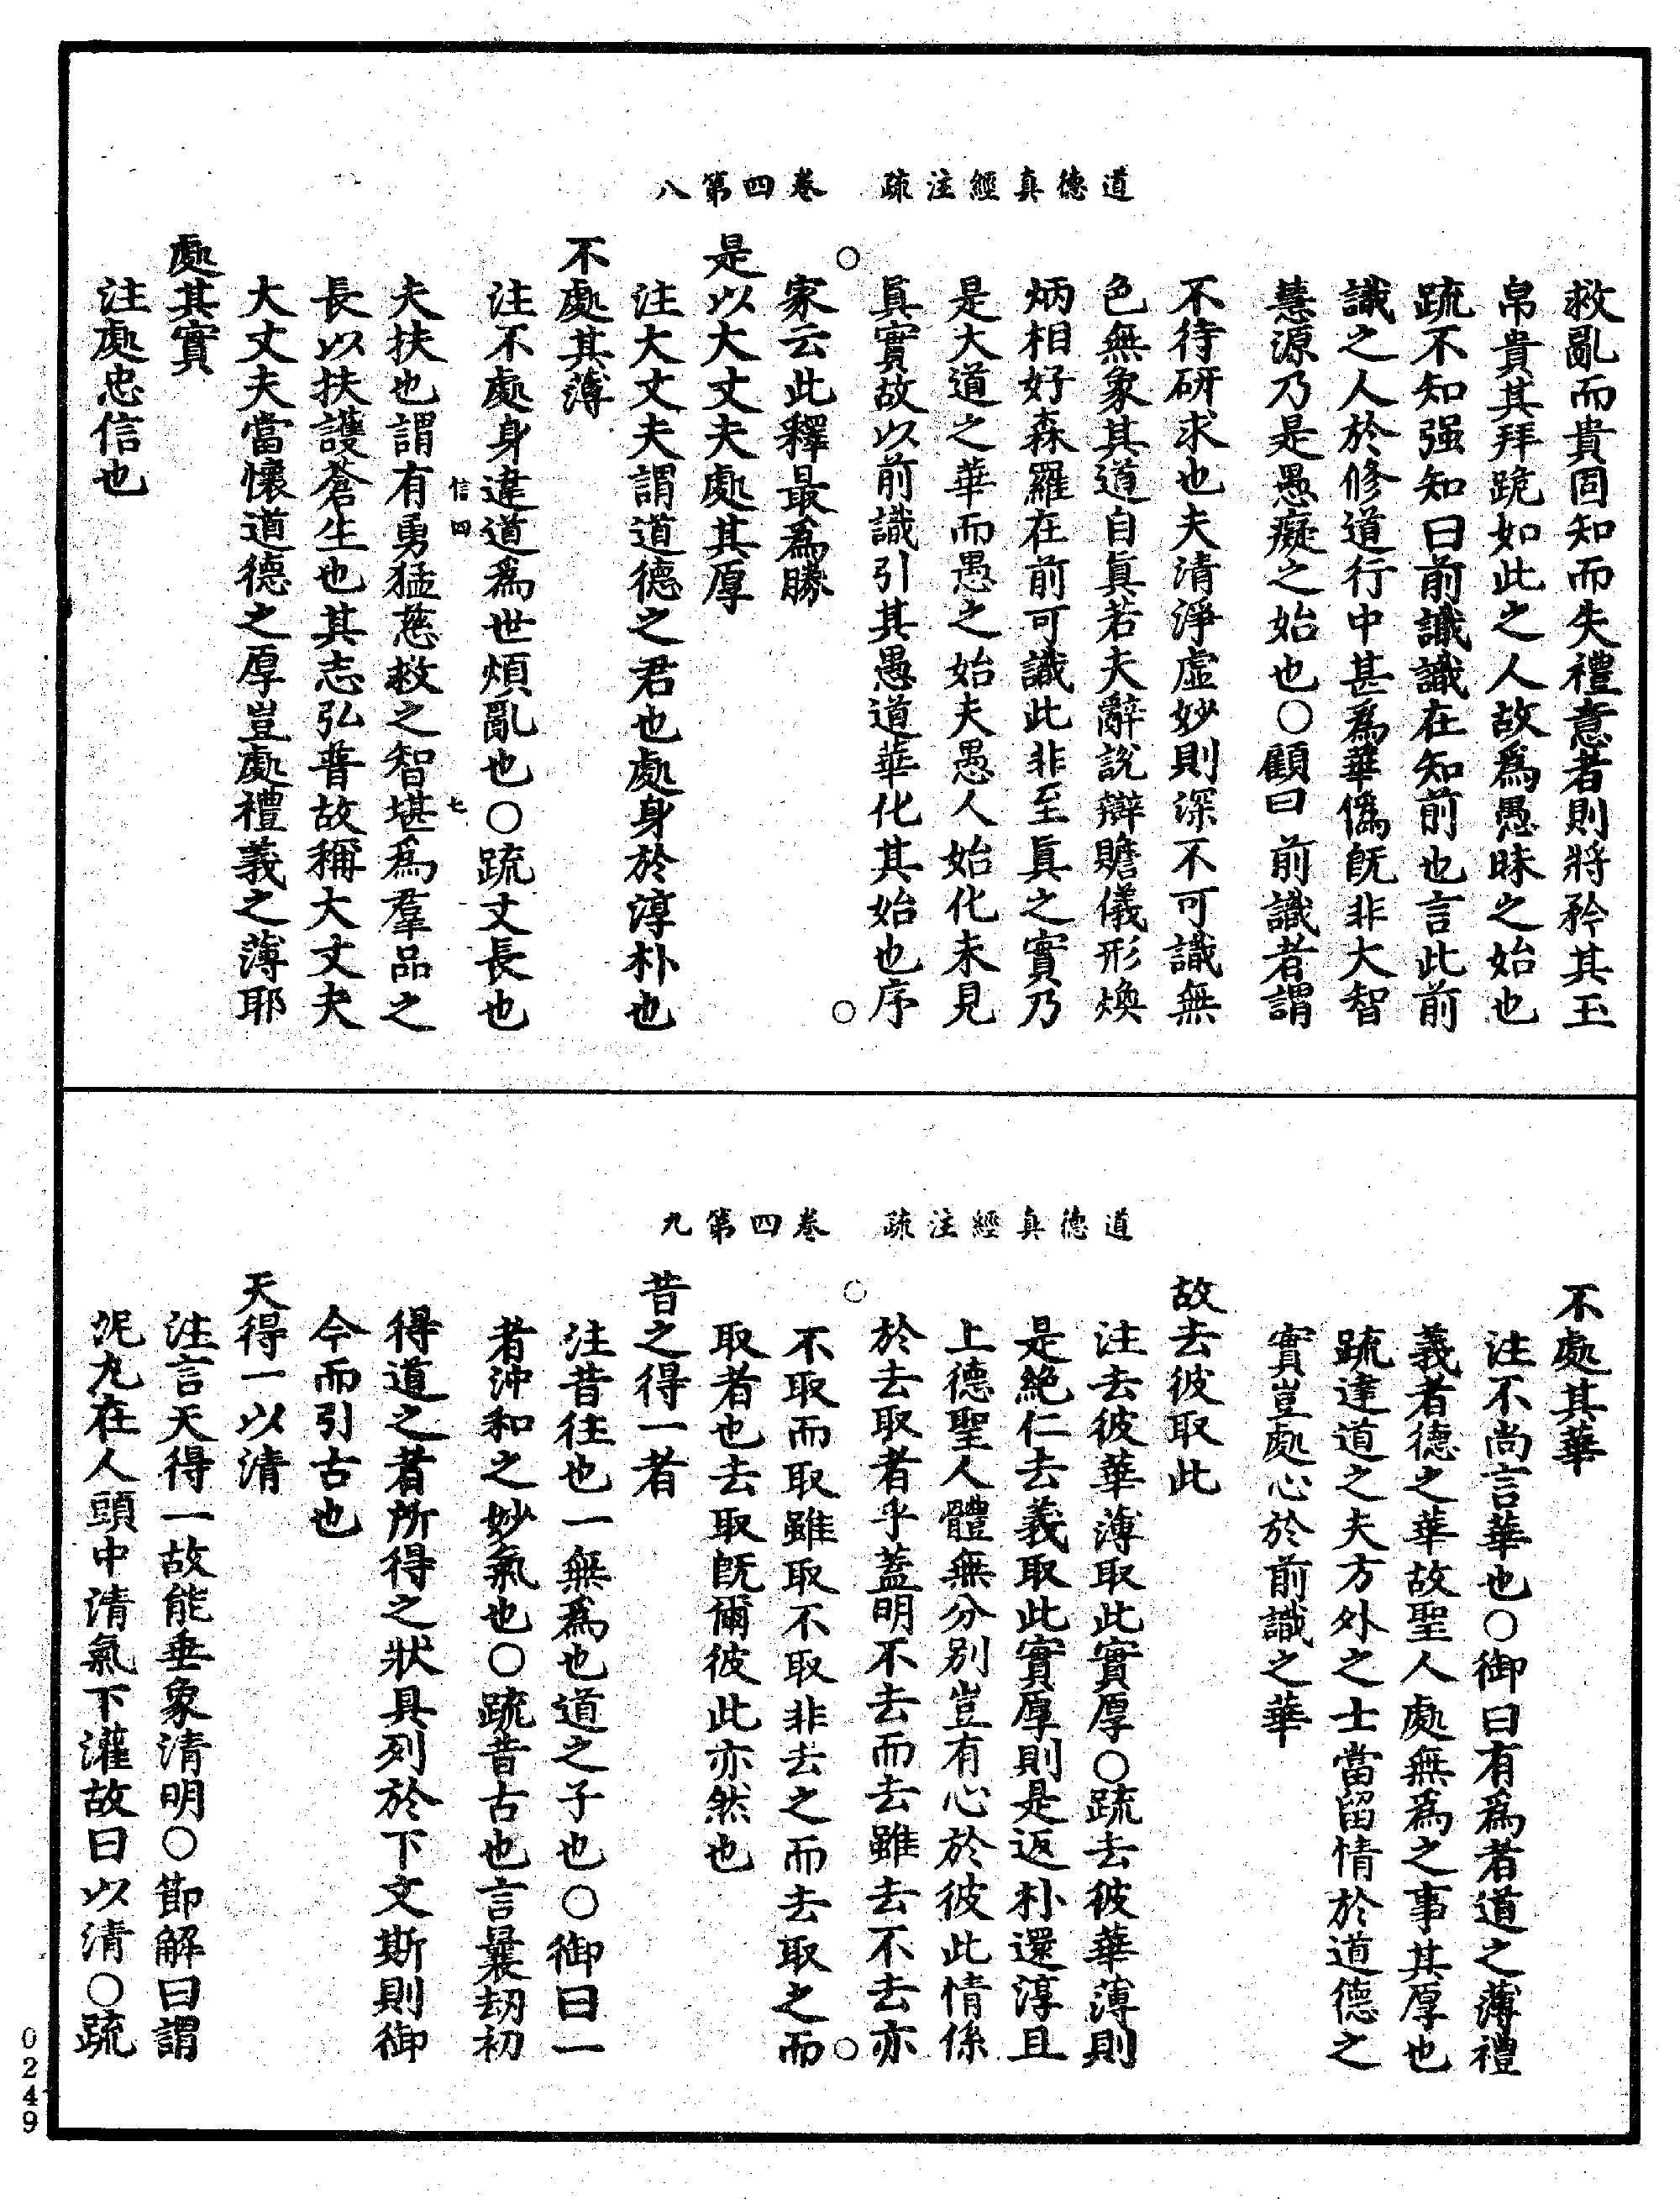 道德真經注疏　卷四第八
救亂而貴固知而失禮意者則將矜其玉
帛貴其拜跪如此之人故爲愚昧之始也
疏不知强知曰前識識在知前也言此前
識之人於修道行中甚爲華僞旣非大智
慧源乃是愚癡之始也○顧曰前識者謂
不待研求也夫清淨虛妙則深不可識無
色無象其道自眞若夫辭說辯贍儀形煥
炳相好森羅在前可識此非至眞之實乃
是大道之華而愚之始夫愚人始化未見
眞實故以前識引其愚道華化其始也序
○　○
家云此釋最爲勝
是以大丈夫處其厚
注大丈夫謂道德之君也處身於淳朴也
不處其薄
注不處身違道爲世煩亂也○疏丈長也
信四　七
夫扶也謂有勇猛慈救之智堪爲羣品之
長以扶護蒼生也其志弘普故稱大丈夫
大丈夫當懷道德之厚豈處禮義之薄耶
處其實
注處忠信也
道德真經注疏　卷四第九
不處其華
注不尚言華也○御曰有爲者道之薄禮
義者德之華故聖人處無爲之事其厚也
疏達道之夫方外之士當留情於道德之
實豈處心於前識之華
故去彼取此
注去彼華薄取此實厚○疏去彼華薄則
是絕仁去義取此實厚則是返朴還淳且
上德聖人體無分別豈有心於彼此情係
於去取者乎蓋明不去而去雖去不去亦
○　○
不取而取雖取不取非去之而去取之而
取者也去取旣爾彼此亦然也
昔之得一者
注昔往也一無爲也道之子也○御曰一
者沖和之妙氣也○疏昔古也言曩劫初
得道之者所得之狀具列於下文斯則御
今而引古也
天得一以清
注言天得一故能垂象清明○節解曰謂
泥丸在人頭中清氣下灌故曰以清○疏
0249